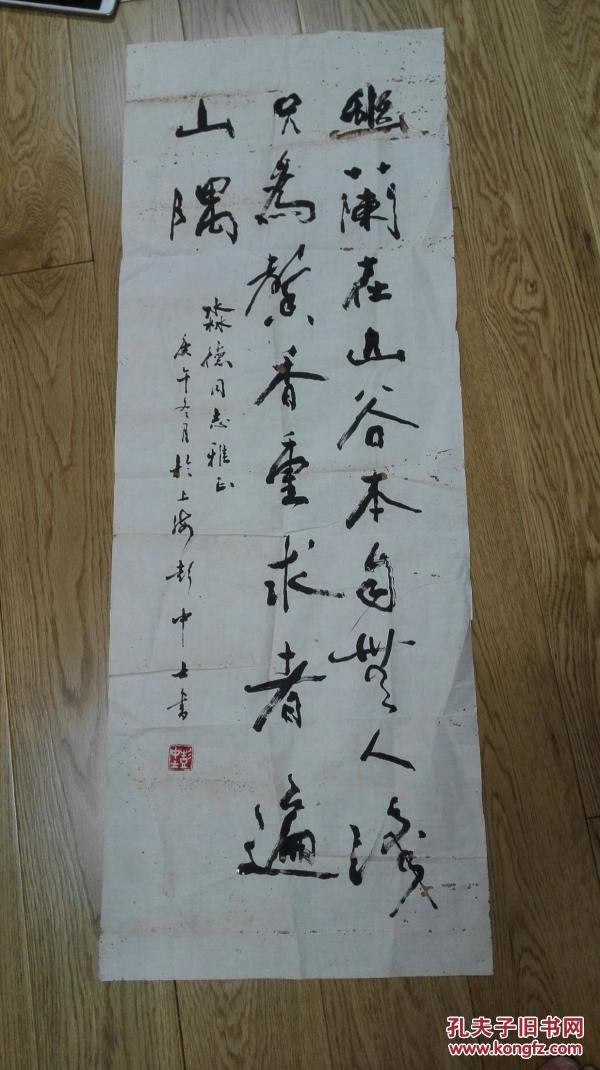 幽蘭在山谷本自無人識
只為馨香重求者遍
山隅
淼德同志雅正
庚午冬月於上海彭中士書
彭中士
孔夫子旧书网
www.kongfz.com